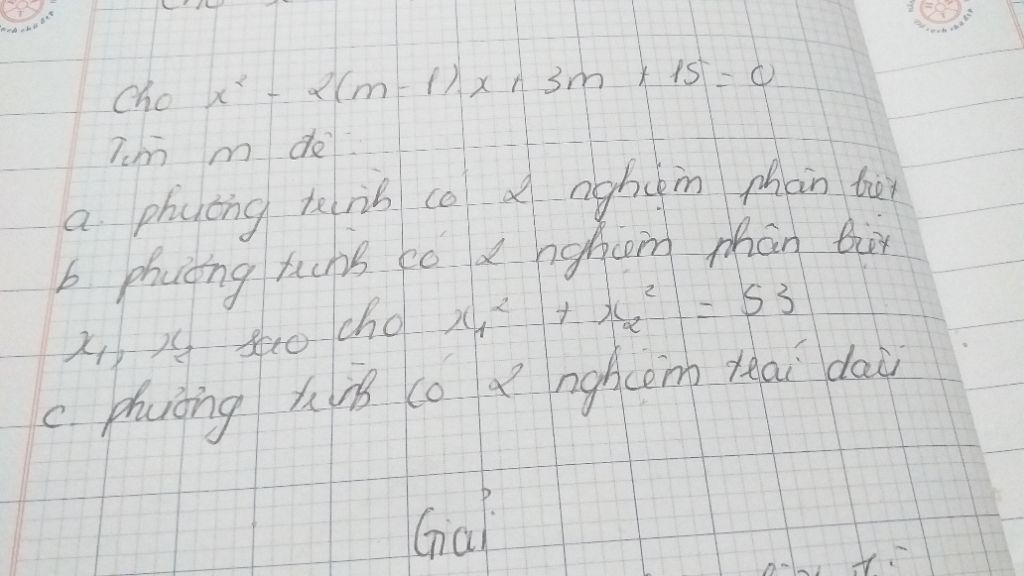 Cho x² - 2(m-1)x + 3m + 15 = 0
Tìm m để:
a. phương trình có 2 nghiệm phân biệt
b. phương trình có 2 nghiệm phân biệt
x₁, x₂ sao cho x₁² + x₂² = 53
c. phương trình có 2 nghiệm trái dấu
Giải